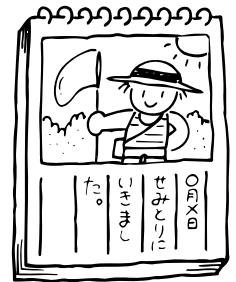 〇月×日
せみとりに
いきまし
た。